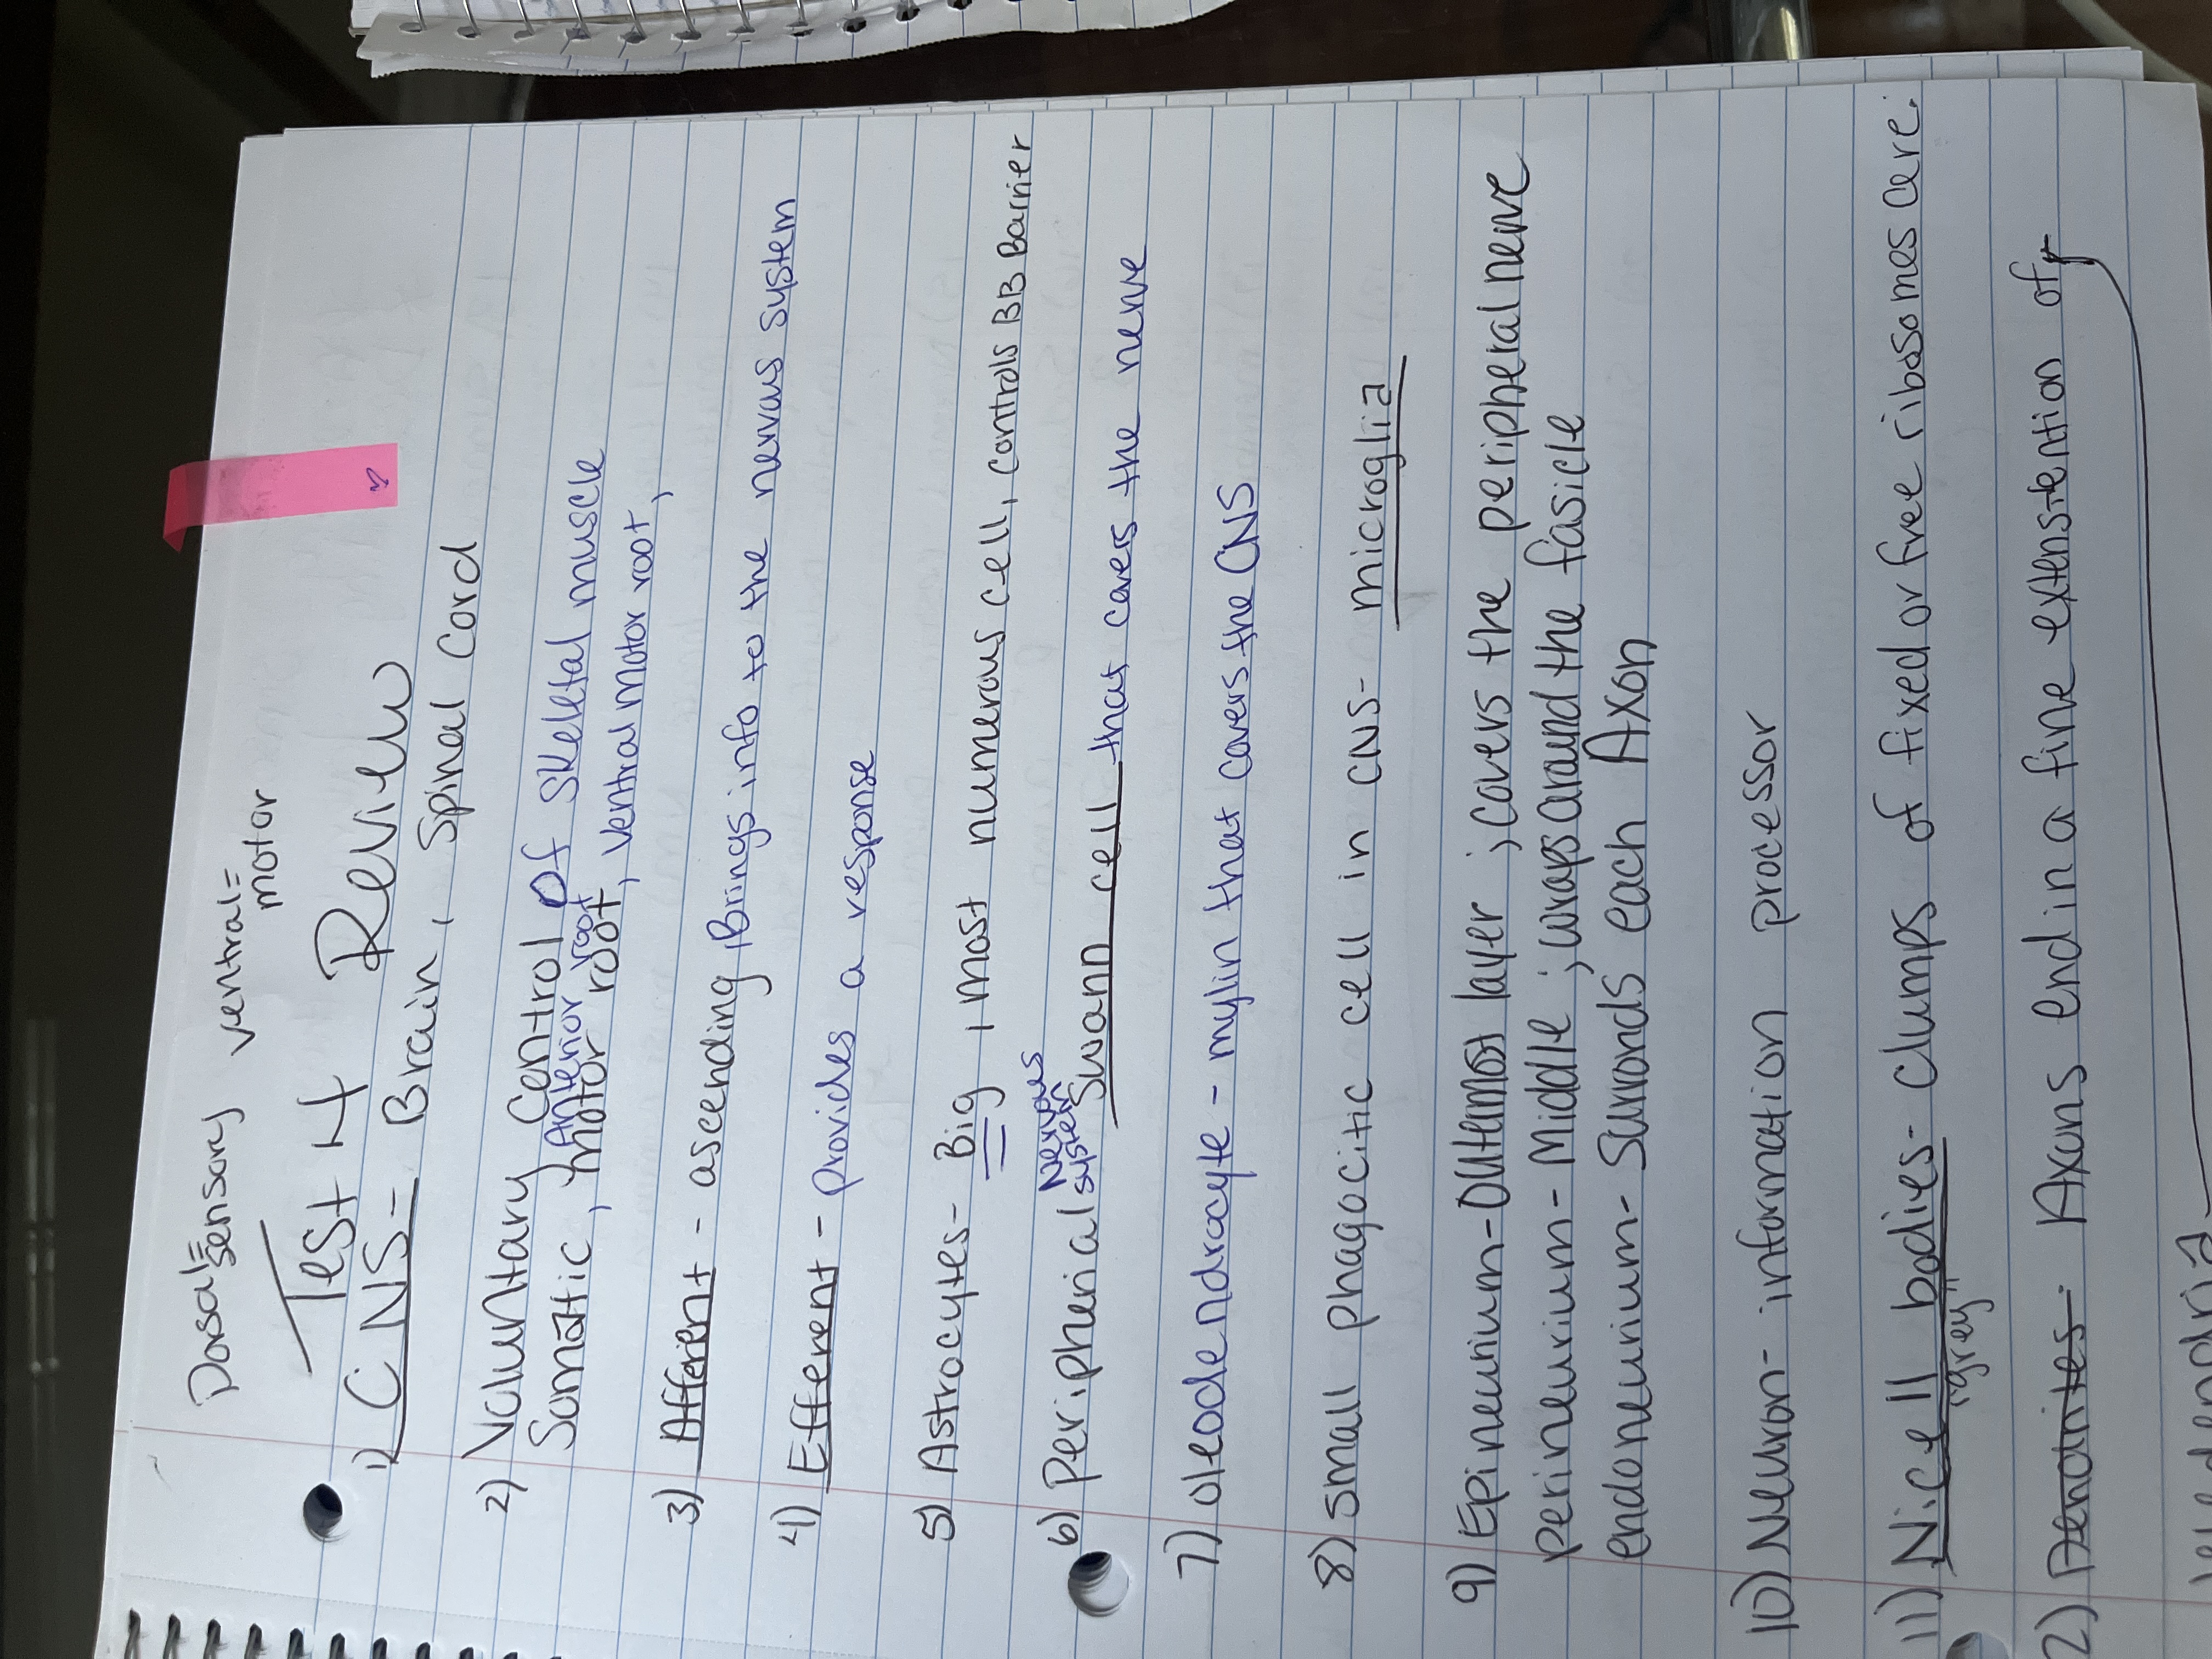 Dorsal= sensory ventral= motor
Test 4 Review
1) CNS= Brain, Spinal Cord
2) Voluntary Control of skeletal muscle
Anterior root
Somattic, motor root, ventral motor root,
3) Afferent - ascending, Brings info to the nervous system
4) Efferent - provides a response
5) Astrocytes- Big, most numerous cell, controls BB Barrier
Nervous system
6) Peripherial Swann cell that covers the nerve
7) oleodendrocyte - mylin that covers the CNS
8) small phagocitic cell in CNS- microglia
9) Epineurium-Outermost layer ; covers the peripheral nerve
perineurium- Middle ; wraps around the fasicle
endoneurium- Surronds each Axon
10) Neuron- information processor
11) Nicell bodies- clumps of fixed or free ribosomes are:
"grey"
2) Dendrites- Axons end in a fine of